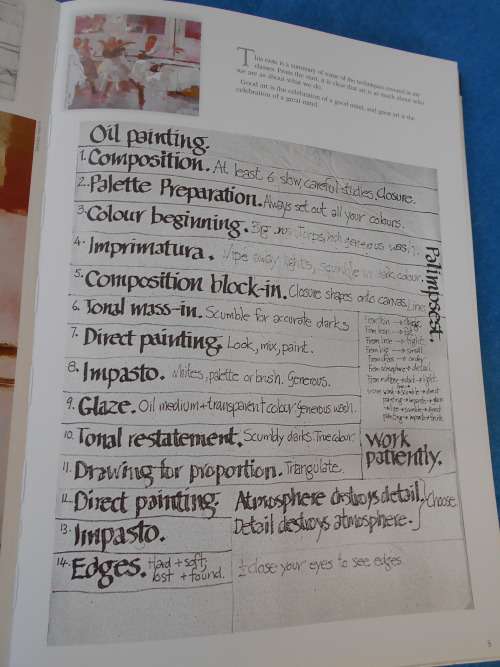 This book is a summary of some of the techniques covered in my
classes. From the start, it is clear that art is as much about who
we are as about what we do.
Good art is the celebration of a good mind, and great art is the
celebration of a great mind.
Oil painting.
1. Composition. At least 6 slow, careful studies, Closure.
2. Palette Preparation. Always set out all your colours.
3. Colour beginning. Big generous wash
4. Imprimatura. Wipe away lights, scumble in dark colour.
5. Composition block-in. Closure shapes onto canvas. Line
6. Tonal mass-in. Scumble for accurate darks
7. Direct painting. Look, mix, paint.
8. Impasto. whites, palette or brush. Generous.
9. Glaze. Oil medium + transparent colour. Generous wash.
10. Tonal restatement. Scumbly darks. True colour.
11. Drawing for proportion. Triangulate.
12. Direct painting.
13. Impasto.
14. Edges. Hard + soft,
lost + found.
Palimpsest.
From thin → thick
From lean → fat
From line → tight.
From big → small.
From chaos → order
From atmosphere → detail.
From → dark → light.
Work
patiently.
Atmosphere destroys detail.
Detail destroys atmosphere. } Choose
½ close your eyes to see edges
5